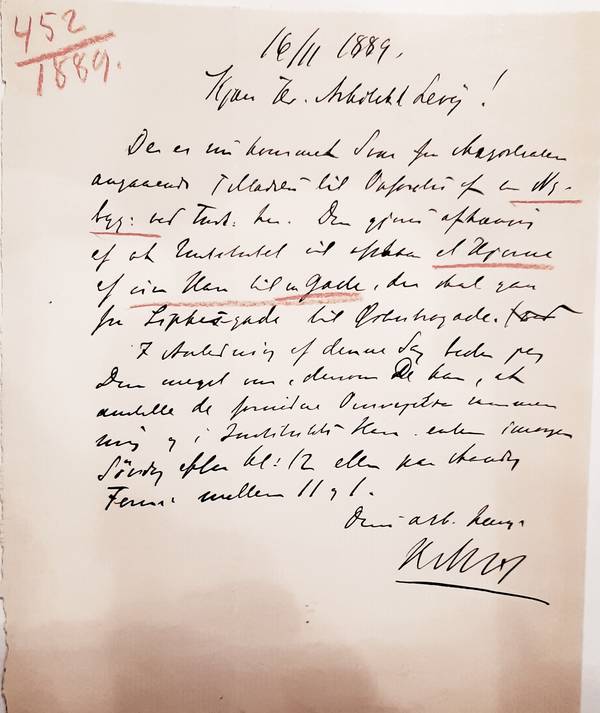 452
1889.
16/11 1889.
Kjære Hr. Arkitekt Levy!
Der er nu kommet Svar fra Magistraten
angaaende Tilladelse til Opførelse af en Ny-
byg: ved Inst: her. Den gjøres afhængig
af at Institutet vil afstaa et Hjørne
af sin Have til en Gade, der skal gaa
fra Lipkesgade til Østerbrogade.
I Anledning af denne Sag beder jeg
Dem meget om, dersom De kan, at
aflægge mig
og i Institutets Have enten imorgen
Søndag efter kl: 12 eller paa Mandag
Form: mellem 11 og 1.
Deres ærb. heng.